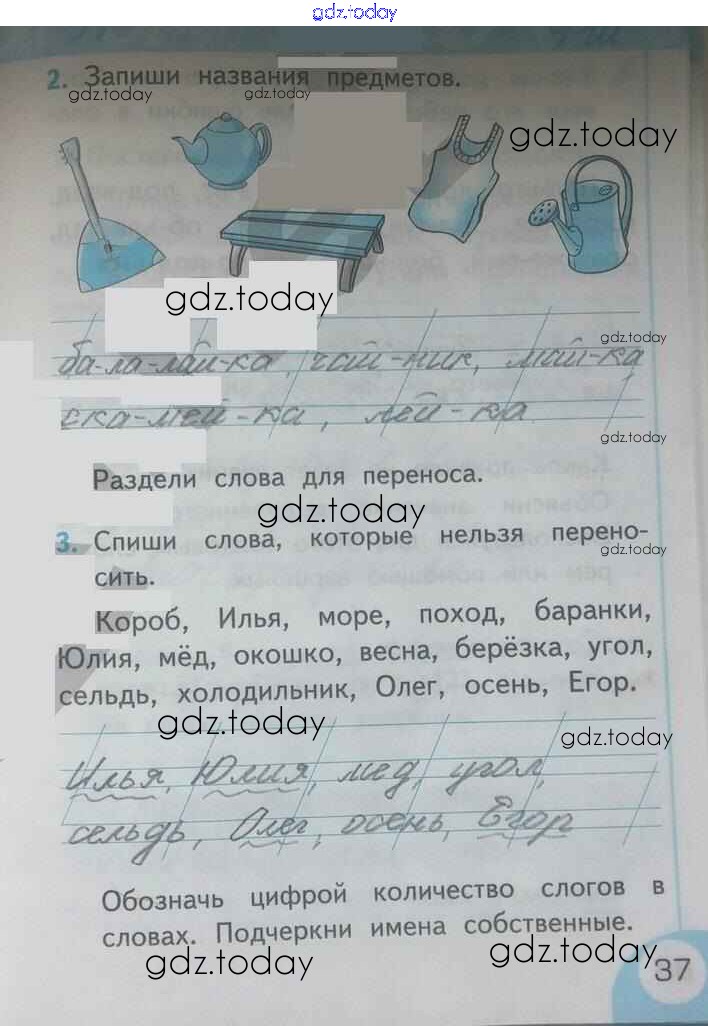 gdz.today
2. Запиши названия предметов.
gdz.today
gdz.today
gdz.today
gdz.today
gdz.today
ба-ла-лай-ка, чай-ник, май-ка
ска-мей-ка, лей-ка
gdz.today
Раздели слова для переноса.
gdz.today
3. Спиши слова, которые нельзя перено-
gdz.today
сить.
Короб, Илья, море, поход, баранки,
Юлия, мёд, окошко, весна, берёзка, угол,
сельдь, холодильник, Олег, осень, Егор.
gdz.today
gdz.today
Илья, Юлия, мед, угол,
сельдь, Олег, осень, Егор
Обозначь цифрой количество слогов в
словах. Подчеркни имена собственные.
gdz.today
gdz.today
37